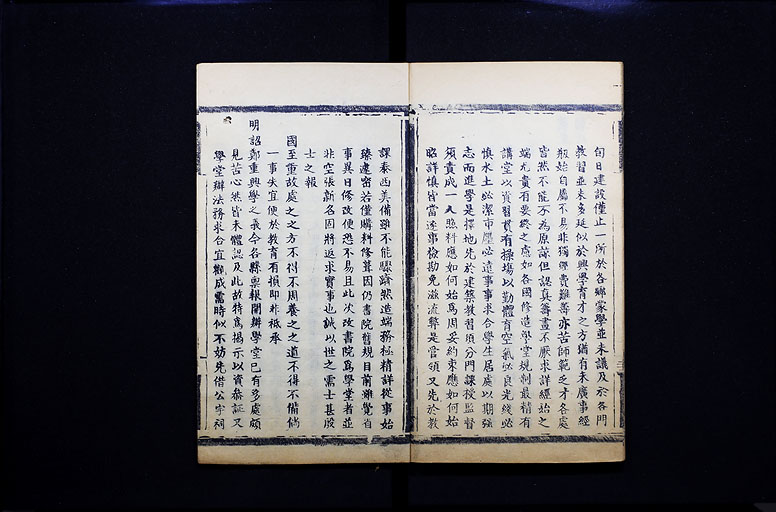 旬日建設僅止一所於各鄉蒙學並未議及於各門
教習並未多延似於興學育才之方猶有未廣事經
始自屬不易非獨經費難籌亦苦師範乏才各處
皆然不能不為原諒但認真籌畫不厭求詳經始之
端尤貴有要終之慮如各國修造學堂規制最稱有
講堂以資習貫有操場以勤體育空氣必良光綫必
慎水土必潔市廛必遠事事求合學生居處以期強
志而進學是擇地先於建築教習須分門課授監督
須責成一人照料應如何始為周妥約束應如何始
昭詳慎皆當逐事檢勘免滋流弊是管領又先於教
課泰西美備雖不能驟躋然造端務極精詳從事始
臻遠密若僅購料修葺因仍書院舊規目前雖覺省
事異日修改便恐不易且此次改書院為學堂者並
非空張新名固將返求實事也誠以世之需士甚殷
士之報
國至重故處之之方不得不周養之之道不得不備倘
一事失宜便於教育有損即非祇承
明詔鄭重興學之義今各縣稟報開辦學堂已有多處頗
見苦心然皆未體認及此故特為揭示以資參証又
學堂辦法務求合宜觀成需時似不妨先借公宇祠